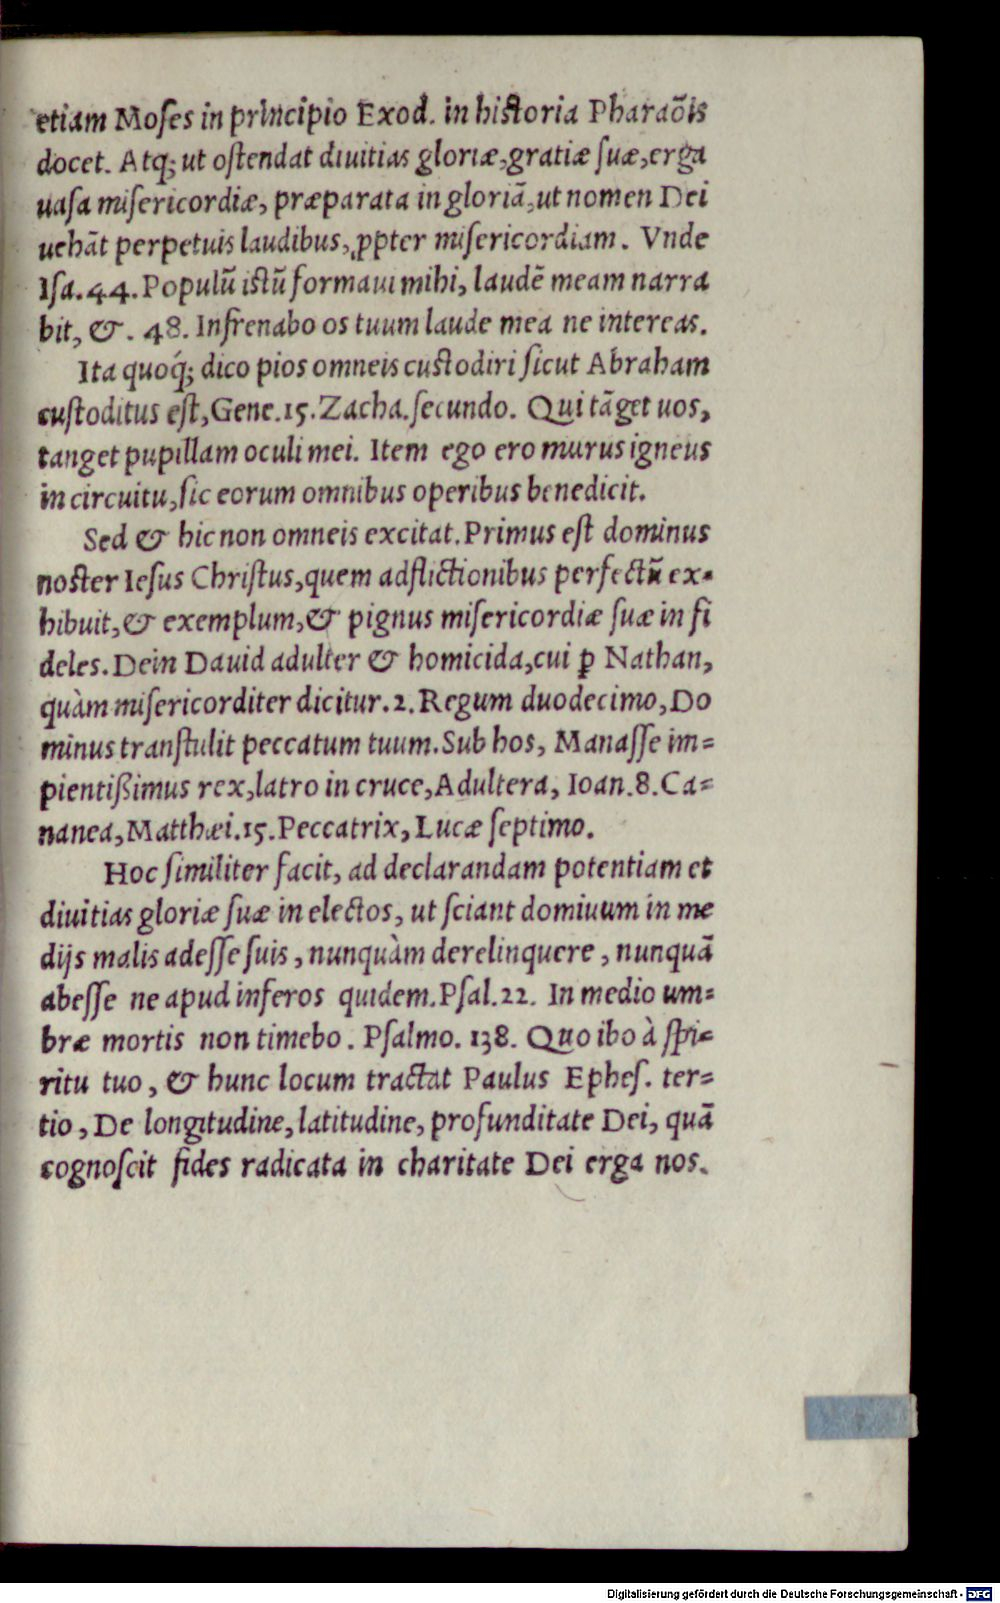 etiam Moſes in principio Exod. in hiſtoria Pharaõis
docet. Atq; ut oſtendat diuitias gloriæ, gratiæ ſuæ, erga
uaſa miſericordiæ, præparata in gloriã, ut nomen Dei
uehãt perpetuis laudibus, ꝓpter miſericordiam. Vnde
Iſa. 44. Populũ iſtũ formaui mihi, laudẽ meam narra
bit, & . 48. Infrenabo os tuum laude mea ne intereas.
Ita quoq́; dico pios omneis cuſtodiri ſicut Abraham
cuſtoditus eſt, Gene. 15. Zacha. ſecundo. Qui tãget uos,
tanget pupillam oculi mei. Item ego ero murus igneus
in circuitu, ſic eorum omnibus operibus benedicit.
Sed & hic non omneis excitat. Primus eſt dominus
noſter Ieſus Chriſtus, quem adflictionibus perfectũ ex-
hibuit, & exemplum, & pignus miſericordiæ ſuæ in fi
deles. Dein Dauid adulter & homicida, cui ꝑ Nathan,
quàm miſericorditer dicitur. 2. Regum duodecimo, Do
minus tranſtulit peccatum tuum. Sub hos, Manaſſe im=
pientißimus rex, latro in cruce, Adultera, Ioan. 8. Ca=
nanea, Matthæi. 15. Peccatrix, Lucæ ſeptimo.
Hoc ſimiliter facit, ad declarandam potentiam et
diuitias gloriæ ſuæ in electos, ut ſciant domiuum in me
dijs malis adeſſe ſuis, nunquàm derelinquere, nunquã
abeſſe ne apud inferos quidem. Pſal. 22. In medio um=
bræ mortis non timebo. Pſalmo. 138. Quo ibo à ſpi=
ritu tuo, & hunc locum tractat Paulus Epheſ. ter=
tio, De longitudine, latitudine, profunditate Dei, quã
cognoſcit fides radicata in charitate Dei erga nos.
Digitalisierung gefördert durch die Deutsche Forschungsgemeinschaft - DFG